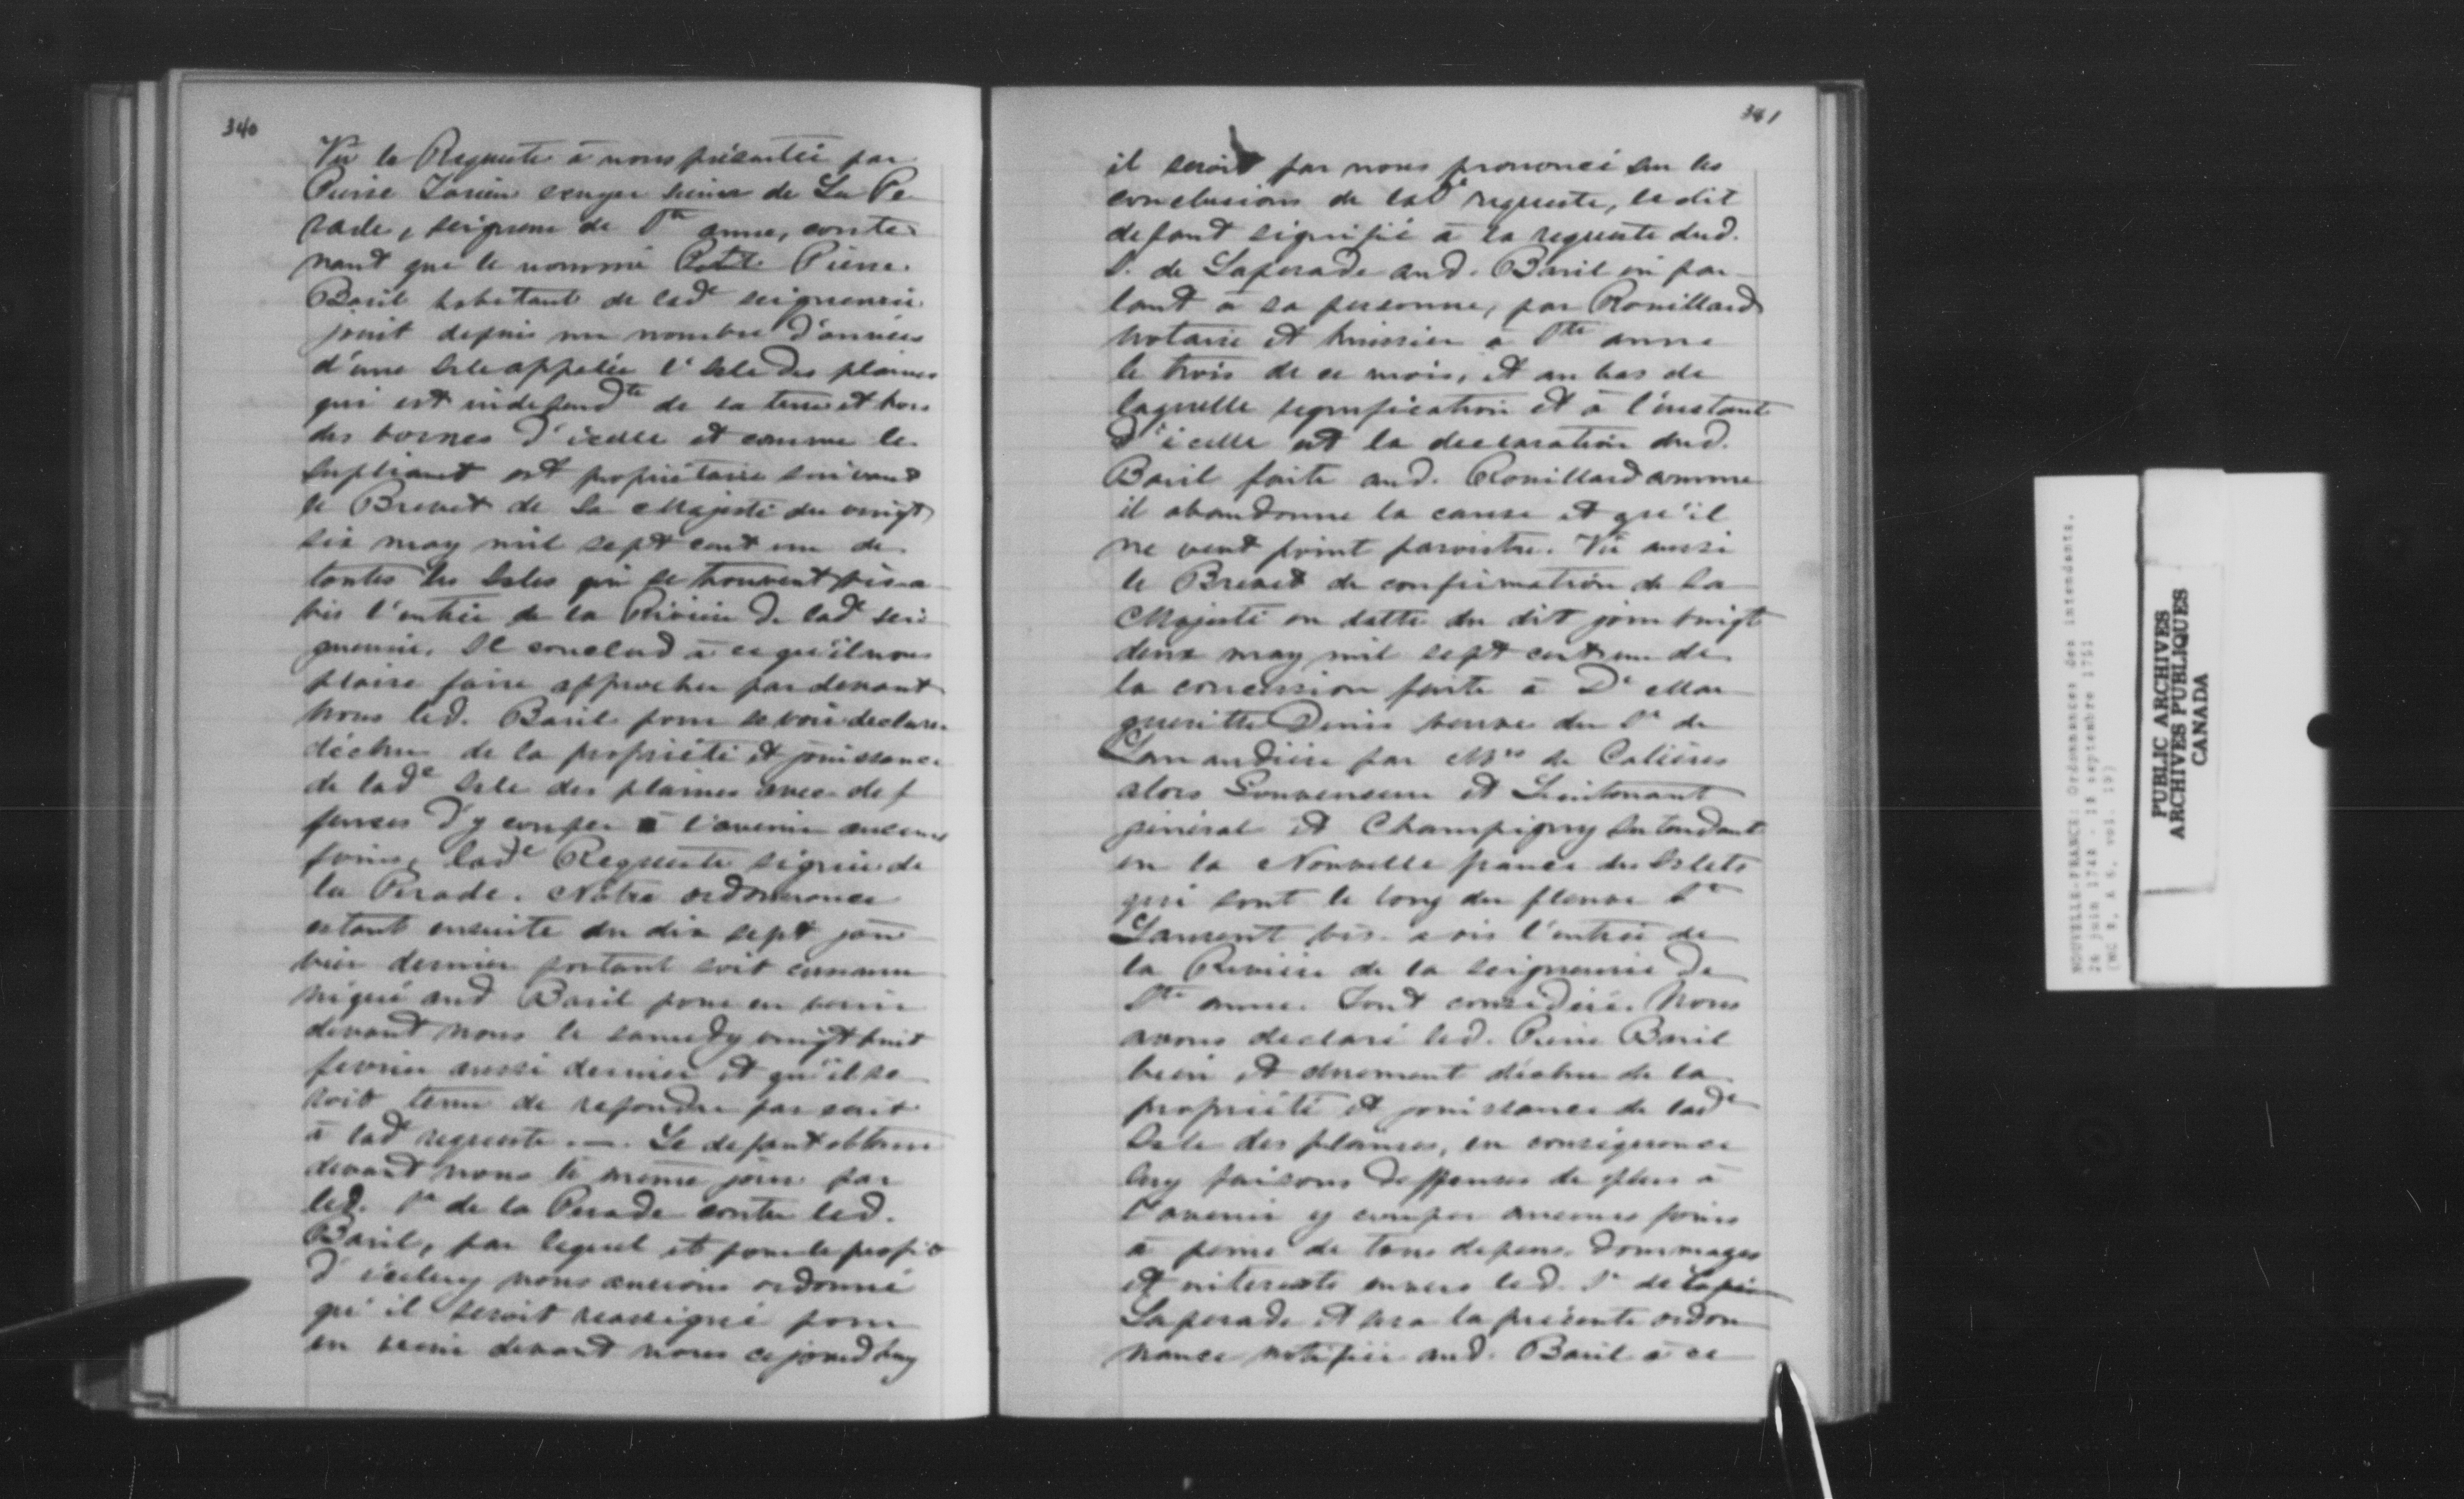 340
Vû la Requeste à nous présentée par
Pierre Tarieu ecuyer sieur de La Pe
rade, seigneur de Ste anne, conte
nant que le nommé Petit Pierre
Baril habitant de ladte seigneurie
jouit depuis un nombre d'années
d'une Isle appelée l'Isle des plaines
qui est independte de sa terre et hors
des bornes d'icelle et comme le
supliant est propriétaire suivant
le Brevet de Sa Majesté du vingt
six may mil sept cent un de
toutes les Isles qui se trouvent vis a
vis l'entrée de la Rivière de lade sei
gneurie. Il conclud à ce qu'il nous
plaise faire approcher par devant
nous led. Baril pour se voir declarer
déchu de la propriété et jouissance
de lade Isle des plaines avec def
fenses d'y couper à l'avenir aucuns
foins, lade Requeste signée de
la Perade. Notre ordonnance
estant ensuite du dix sept jan
vier dernier portant soit commu
niqué aud Baril pour en venir
devant nous le samedy vingt huit
fevrier aussi dernier et qu'il se
roit tenu de repondre par ecrit
à lade requeste. —. Le defaut obtenu
devant nous le même jour par
led. Sr de la Perade contre led.
Baril, par lequel et pour le profit
d'iceluy nous aurions ordonné
qu'il seroit reassigné pour
en venir devant nous ce jourd'huy
341
il seroit par nous prononcé sur les
conclusions de lade requeste, le dit
defaut signifié à la requeste dud.
S. de Laperade aud. Baril en par
lant à sa personne, par Rouillard
notaire et huissier à Ste anne
le trois de ce mois, et au bas de
laquelle signification et à l'instant
d'icelle est la declaration dud.
Baril faite aud. Rouillard comme
il abandonne la cause et qu'il
ne veut point paroistre. Vû aussi
le Brevet de confirmation de Sa
Majesté en datte du dit jour vingt
deux may mil sept cent un de
la concession faite à De Mar
gueritte Denis veuve du Sr de
Lanaudière par Mrs de Calières
alors Gouverneur et Lieutenant
général et Champigny Intendant
en la Nouvelle france des Islets
qui sont le long du fleuve St
Laurent vis a vis l'entrée de
la Rivière de la seigneurie de
Ste anne. Tout considéré. Nous
avons declaré led. Pierre Baril
bien et duement déchu de la
propriété et jouissance de lade
Isle des plaines, en consequence
luy faisons deffenses de plus à
l'avenir y couper aucuns foins
à peine de tous depens, dommages
et interests envers led. Sr de
Laperade et sera la présente ordon
nance notifiée aud. Baril à ce
NOUVELLE-FRANCE: Ordonnances des intendants.
26 juin 1748 - 18 septembre 1751
PUBLIC ARCHIVES
ARCHIVES PUBLIQUES
CANADA